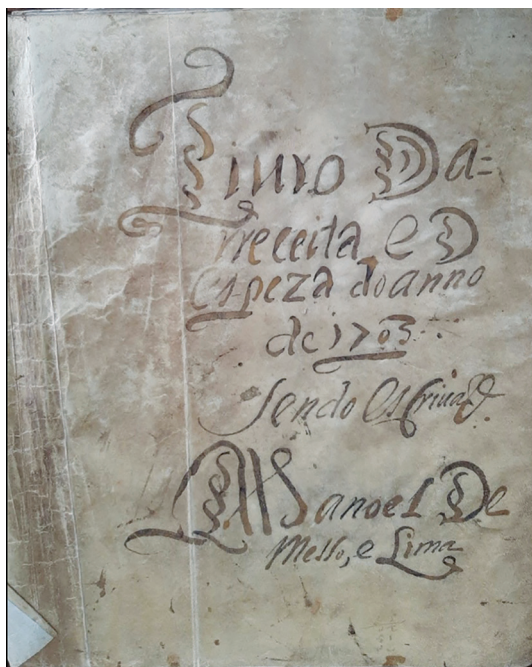 Liuro Da=
rreceita e D
espeza do anno
de 1703
Sendo Escriuaõ
Manoel De
Mello, e Lima